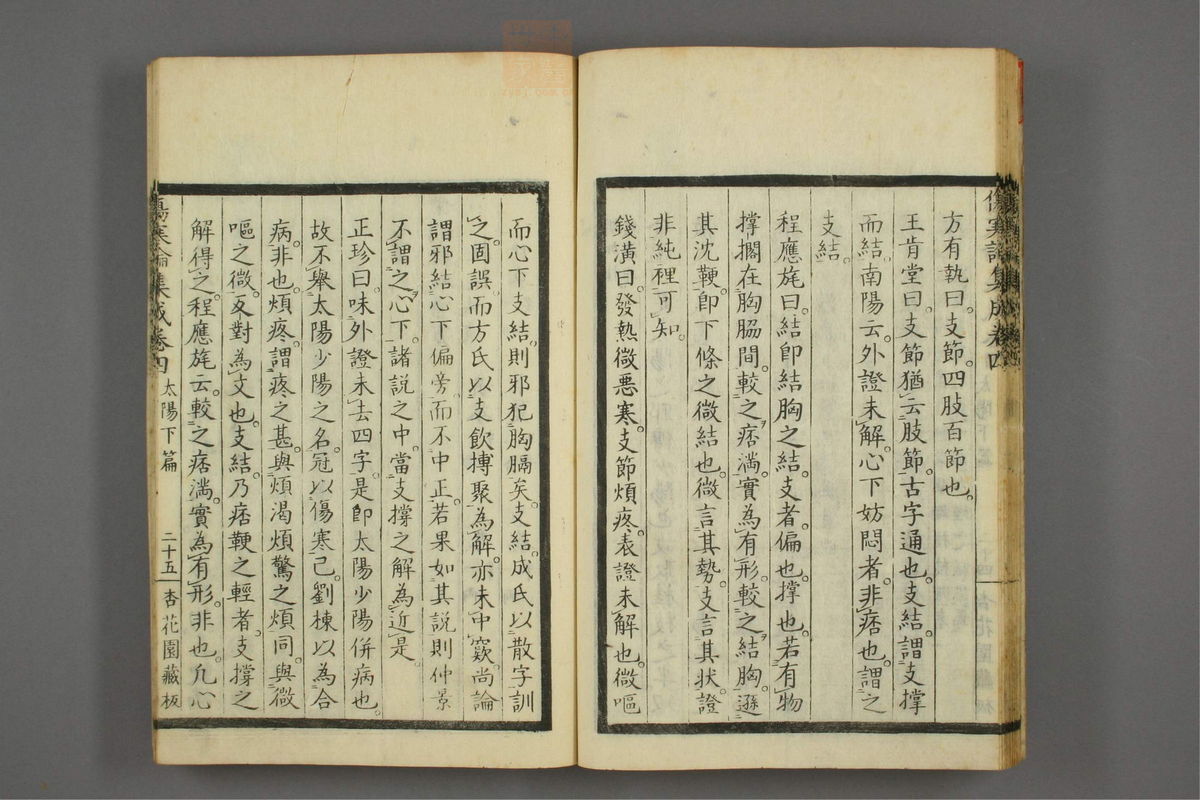 傷寒論集成卷四
方有執曰。支節。四肢百節也。
王肯堂曰。支節猶云肢節。古字通也。支結。謂支撑
而結。南陽云。外證未解。心下妨悶者。非痞也。謂之
支結。
程應旄曰。結即結胸之結。支者。偏也。撑也。若有物
撑擱在胸脇間。較之痞滿。實為有形。較之結胸。遜
其沈鞕。即下條之微結也。微言其勢。支言其狀。證
非純裡可知。
錢潢曰。發熱微惡寒。支節煩疼。表證未解也。微嘔
而心下支結。則邪犯胸膈矣。支結。成氏以散字訓
之。固誤。而方氏以支飲摶聚為解。亦未中窽。尚論
謂邪結心下偏旁。而不中正。若果如其說則仲景
不謂之心下。諸説之中。當支撐之解為近是。
正珍曰。味外證未去四字。是即太陽少陽併病也。
故不舉太陽少陽之名。冠以傷寒已。劉棟以為合
病。非也。煩疼。謂疼之甚。與煩渴煩驚之煩同。與微
嘔之微。反對為文也。支結乃痞鞕之輕者。支撐之
解得之。程應旄云。較之痞滿。實為有形。非也。凡心
傷寒論集成卷四 太陽下篇 二十五 杏花園藏板